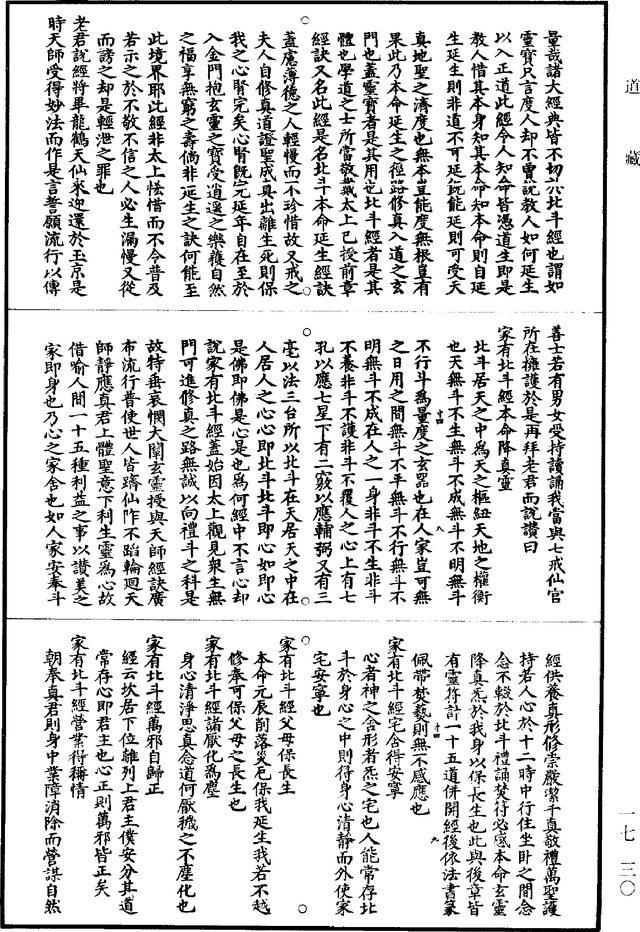 道藏
量哉諸大經典皆不切於北斗經也謂如
靈寶只言度人却不曹說教人如何延生
以入正道此經令人知命皆憑道生即是
教人惜其本身知其本命知本命則自延
生延生則非道不可延既能延則可受天
真地聖之濟度也無本豈能度無根豈有
果此乃本命延生之徑路修真入道之玄
門也蓋靈寶者是其用也北斗經者是其
體也學道之士所當敬戴太上已授前章
經訣又名此經是名北斗本命延生經訣
蓋慮薄德之人輕慢而不珍惜故又戒之
夫人自修真道證聖成真出離生死則保
我之心腎完矣心腎既完延年自在至於
入金門抱玄靈之寶受逍遥之樂穫自然
之福享無窮之壽倘非延生之訣何能至
此境界耶此經非太上恡惜而不令普及
若示之於不敬不信之人必生漏慢又從
而謗之却是輕泄之罪也
老君說經將畢龍鶴天仙來迎還於玉京是
時天師受得妙法而作是言誓願流行以傳
善士若有男女受持讀誦我當與七戒仙官
所在擁護於是再拜老君而說讚曰
家有北斗經本命降真靈
北斗居天之中為天之樞紐天地之權衡
也天無斗不生無斗不成無斗不明無斗
不行斗為量度之玄器也在人家豈可無
之日用之間無斗不平無斗不行無斗不
明無斗不成在人之一身非斗不生非斗
不養非斗不護非斗不覆人之心上有七
孔以應七星下有二竅以應輔弼又有三
毫以法三台所以北斗在天居天之中在
人居人之心心即北斗北斗即心如即心
是佛即佛是心是也為何經中不言心却
說家有北斗經蓋始因太上觀見衆生無
門可進修真之路無誠以向禮斗之科是
故特垂哀憫大闡玄靈授與天師經訣廣
布流行普使世人皆躋仙阼不蹈輪迴天
師靜應真君上體聖意下利生靈為心故
借喻人間一十五種利益之事以讚美之
家即身也乃心之家舍也如人家安奉斗
經供養真形修崇嚴潔千真敬禮萬聖護
持若人心於十二時中行住坐卧之間念
念不輟於北斗禮誦焚符必感本命玄靈
降真炁於我身以保長生也此與後章皆
有靈符計一十五道併開經後依法書篆
佩帶焚爇則無不感應也
家有北斗經宅舍得安寧
心者神之舍形者炁之宅也人能常存北
斗於身心之中則得身心清靜而外使家
宅安寧也
家有北斗經父母保長生
本命元辰削落災厄保我延生我若不越
修奉可保父母之長生也
家有北斗經諸厭化為塵
身心清淨思真念道何厭穢之不塵化也
家有北斗經萬邪自歸正
經云坎居下位離列上君主僕安分其道
常存心即君主也心正則萬邪皆正矣
家有北斗經營業得稱情
朝奉真君則身中業障消除而營謀自然
十四
八
十四
九
一七
一三〇